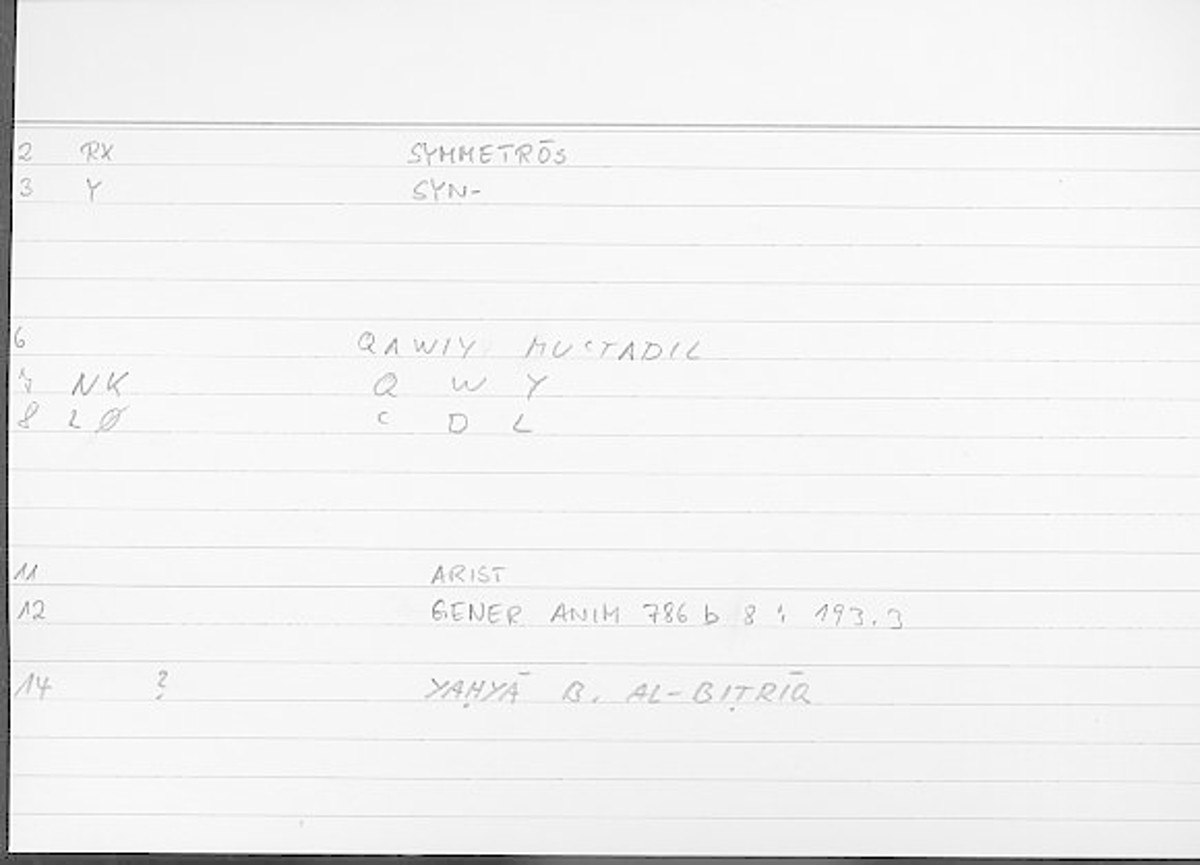 2 RX SYMMETRŌS
3 Y SYN-
6 QAWIY MUʿTADIL
7 NK Q W Y
8 2Ø ʿ D L
11 ARIST
12 GENER ANIM 786 b 8 : 193.3
14 ? YAḤYĀ B. AL-BIṬRĪQ